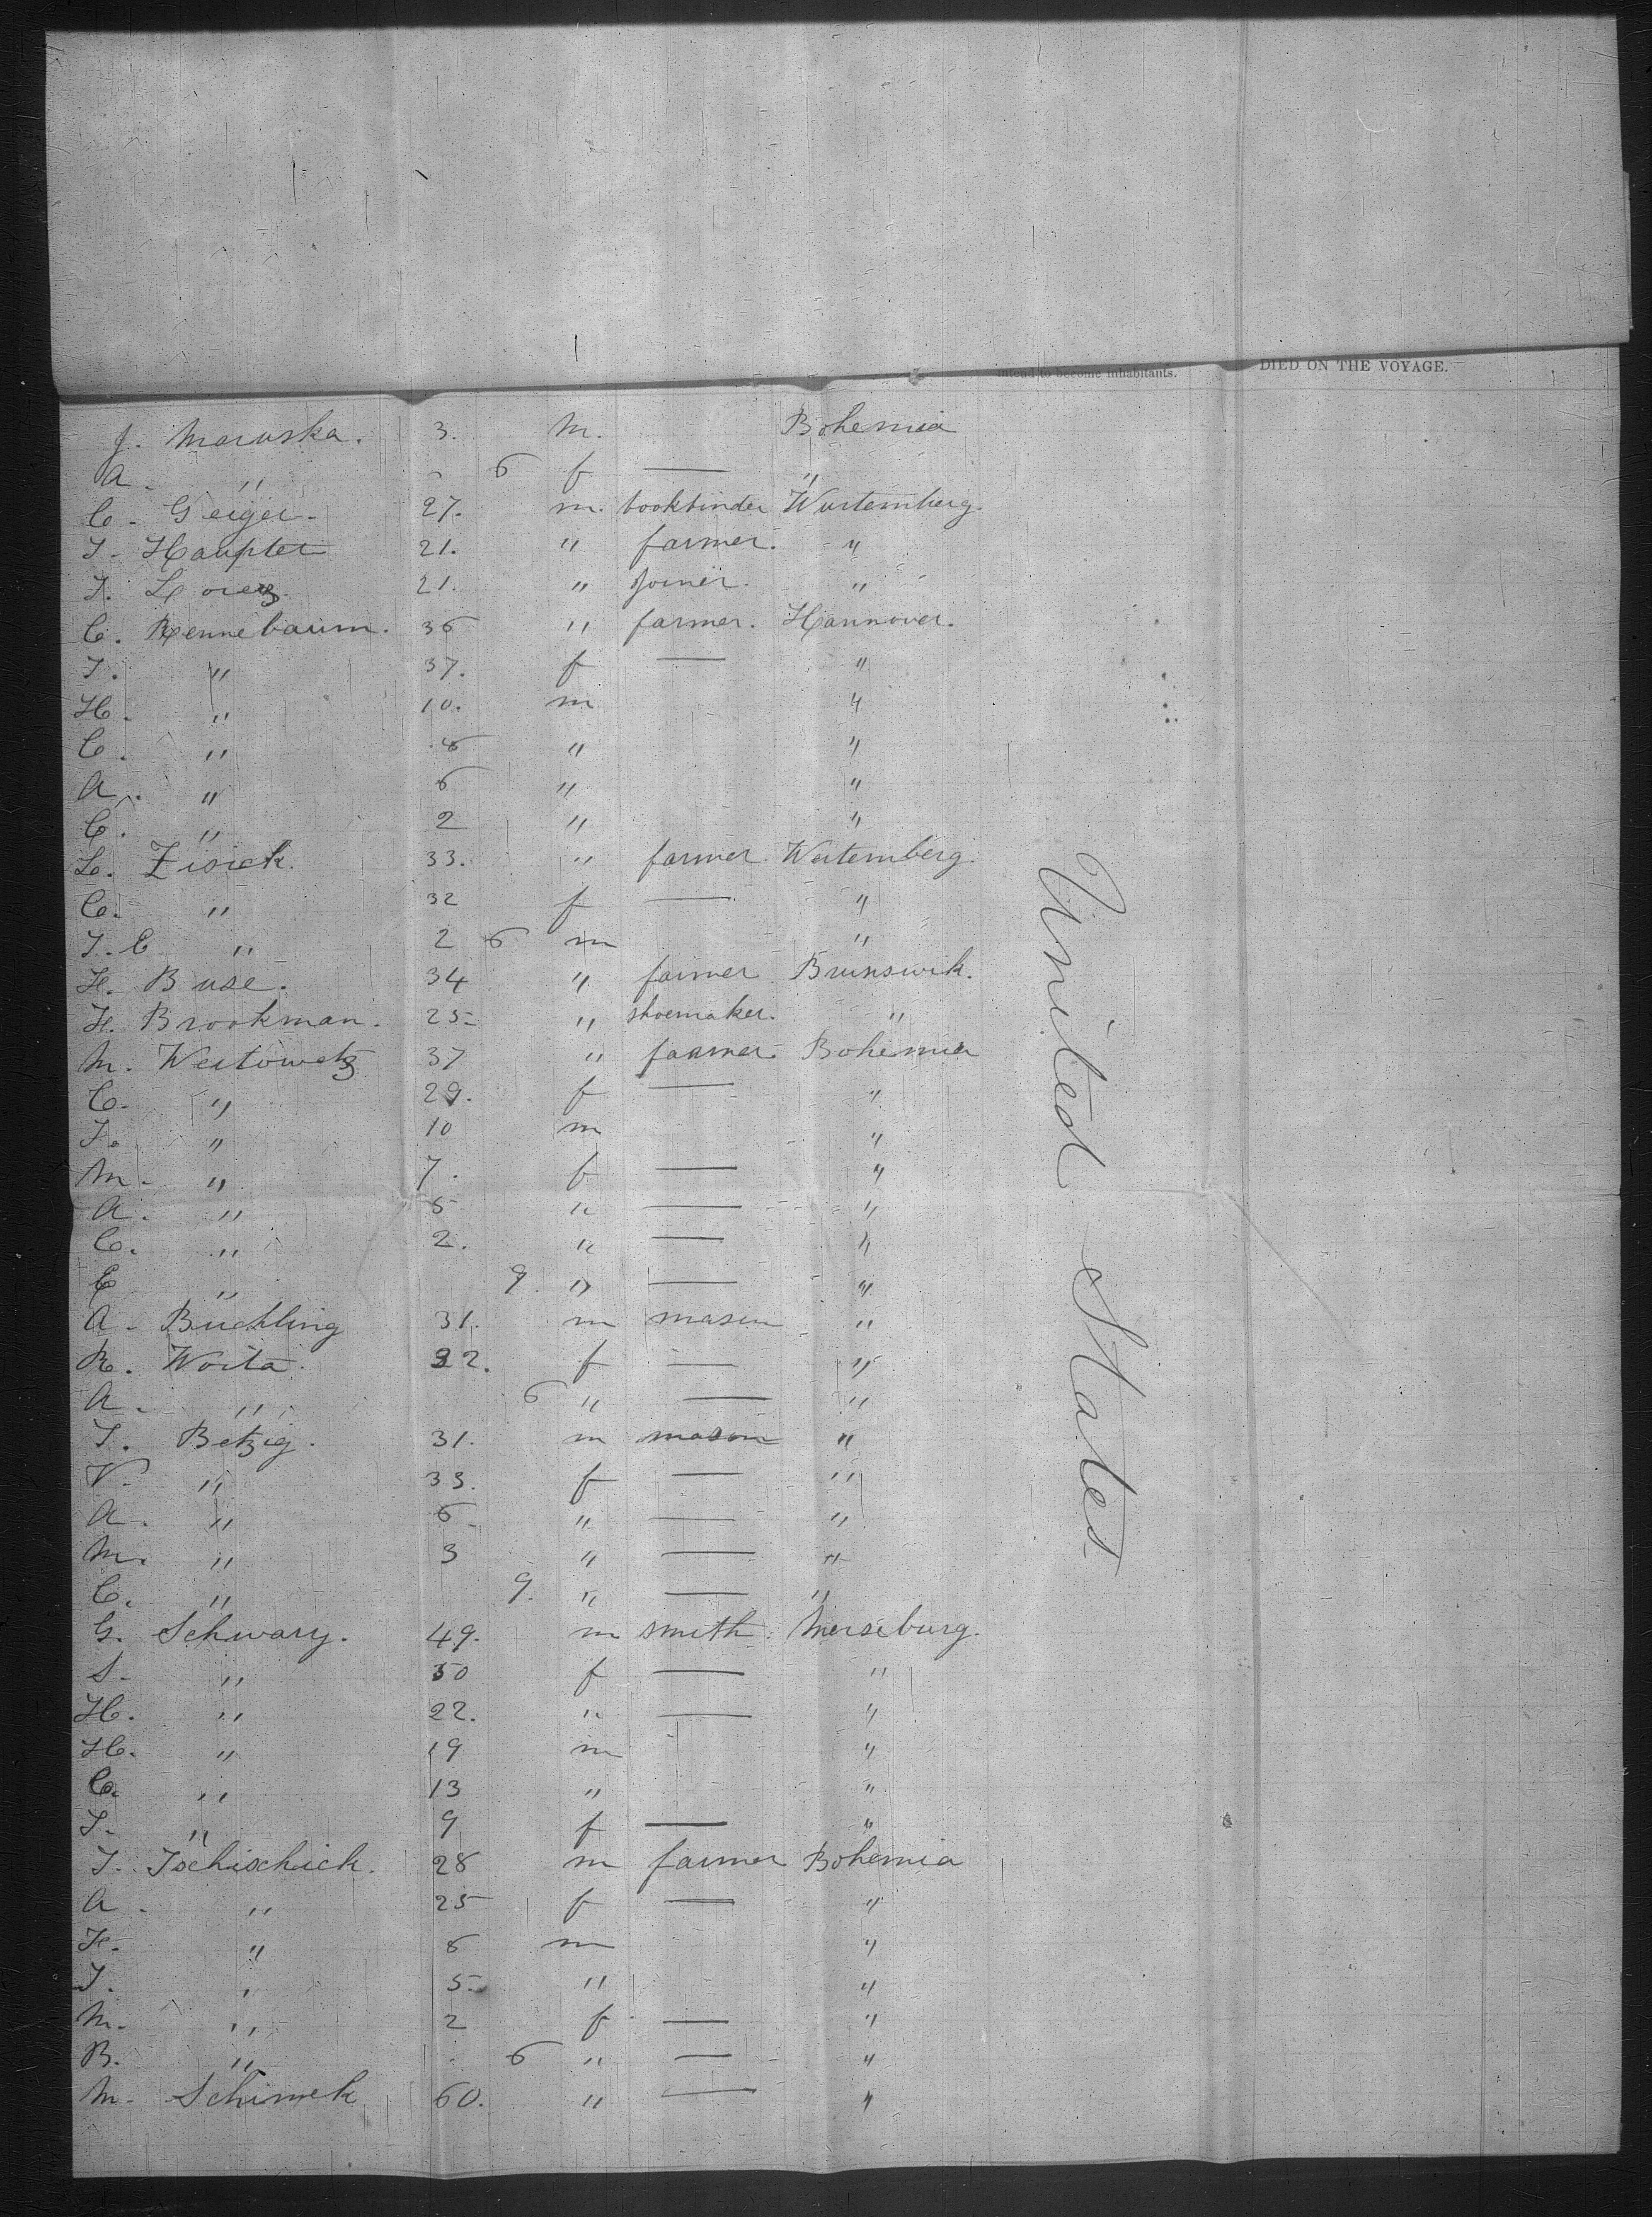 intend to become inhabitants. DIED ON THE VOYAGE.
J. Maruska. 3. m. Bohemia
A. " - 6 f — "
C. Geiger. 27. m. bookbinder Wurtemberg.
J. Haupter 21. " farmer. "
J. Lorez. 21. " Joiner. "
C. Rennebaum. 36 " farmer. Hannover.
J. " 37. f — "
H. " 10. m "
C. " 8 " "
A. " 6 " "
C. " 2 " "
L. Zisick. 33. " farmer. Wertemberg.
C. " 32 f — "
J. C " 2 6 m "
H. Buse. 34 " farmer Brunswik.
H. Brookman. 25 " shoemaker. "
M. Westowetz 37 " farmer Bohemia
C. " 29. f — "
J. " 10 m "
M. " 7. f — "
A. " 5 " — "
C. " 2. " — "
E " 9. " — "
A. Büchling 31. m mason "
R. Woita. 22. f — "
A. " 6 " — "
J. Betzig. 31. m mason "
V. " 33. f — "
A. " 6 " — "
M. " 3 " — "
C. " 9. " — "
G. Schwarz. 49. m smith. Merseburg.
S. " 50 f — "
H. " 22. " — "
H. " 19 m "
C. " 13 " "
J. " 9 f — "
J. Tschischick. 28 m farmer Bohemia
A. " 25 f — "
H. " 8 m "
J. " 5 " "
M. " 2 f — "
B. " 6 " — "
M. Schimek 60. " — "
United States